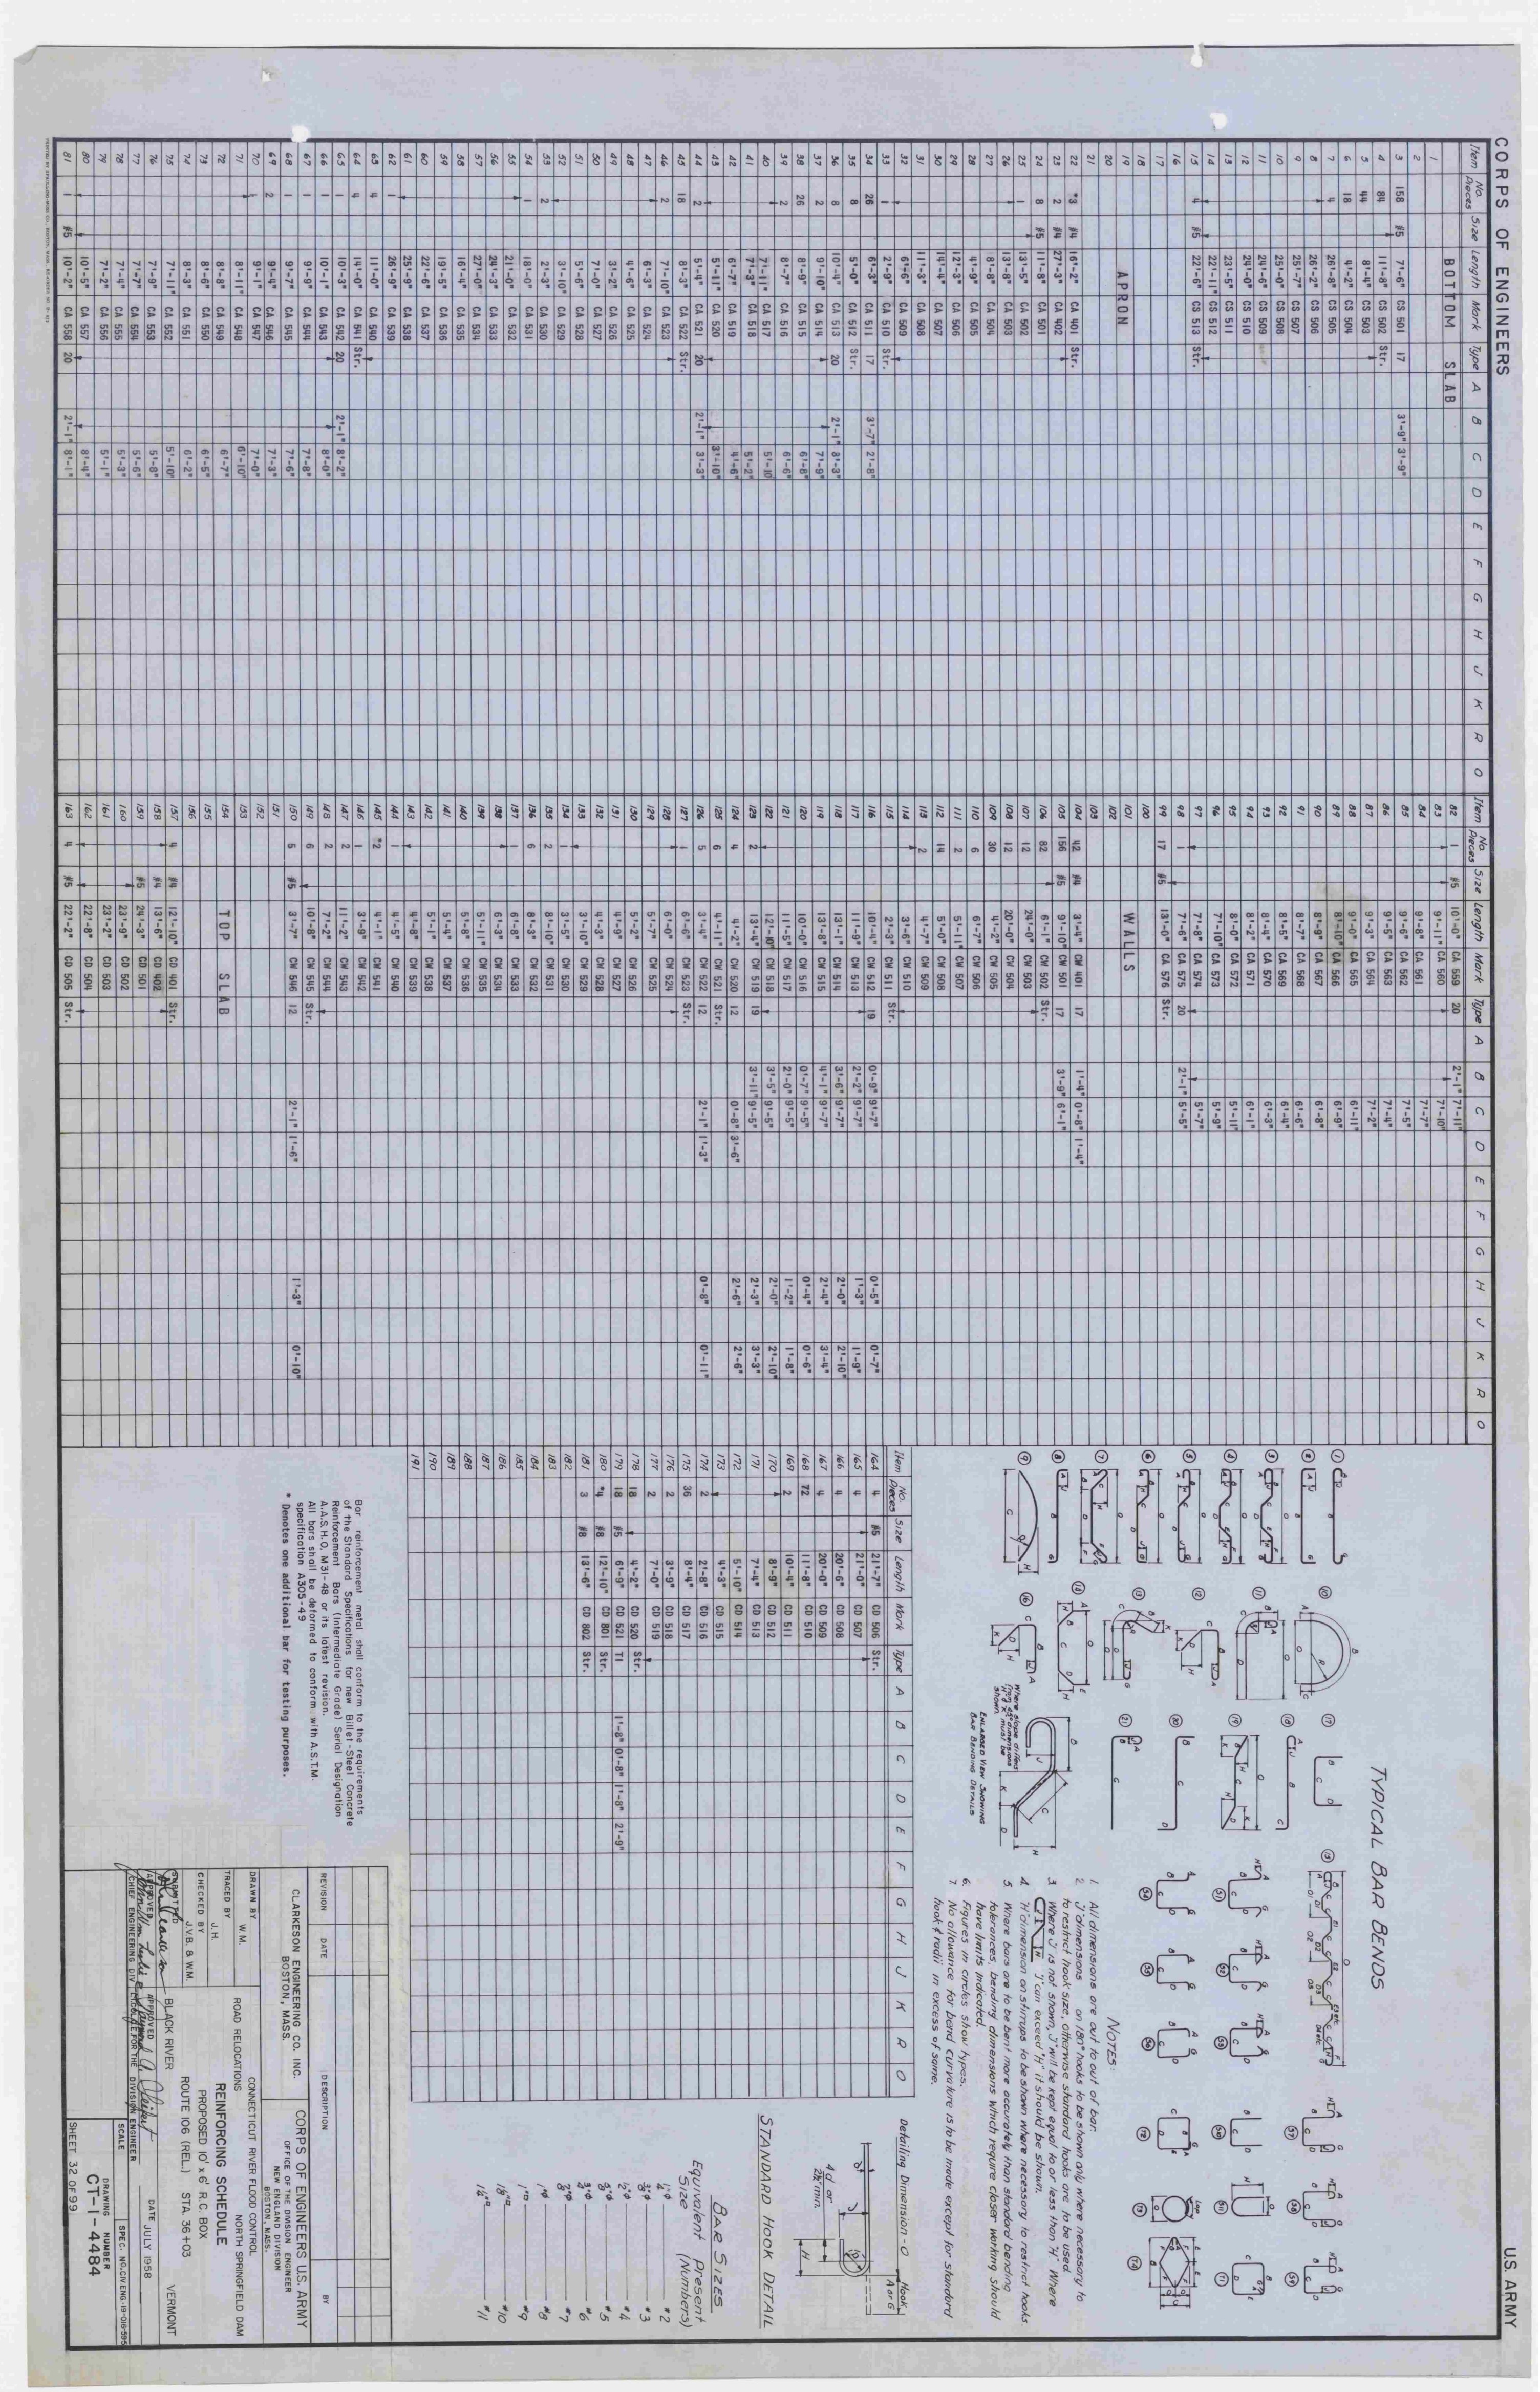 CORPS OF ENGINEERS
U.S. ARMY
Item No. Pieces Size Length Mark Type A B C D E F G H J K R O
1 BOTTOM SLAB
2
3 158 #5 7'-6" CS 501 17 3'-9" 3'-9"
4 84 11'-8" CS 502 Str.
5 44 8'-4" CS 503
6 18 4'-2" CS 504
7 4 26'-8" CS 505
8 26'-2" CS 506
9 25'-7" CS 507
10 25'-0" CS 508
11 24'-6" CS 509
12 24'-0" CS 510
13 23'-5" CS 511
14 22'-11" CS 512
15 4 #5 22'-6" CS 513 Str.
16
17
18
19 APRON
20
21
22 *3 #4 16'-2" CA 401 Str.
23 2 #4 27'-3" CA 402
24 8 #5 11'-8" CA 501
25 1 13'-5" CA 502
26 13'-8" CA 503
27 8'-8" CA 504
28 4'-9" CA 505
29 12'-3" CA 506
30 14'-9" CA 507
31 11'-3" CA 508
32 6'-6" CA 509
33 1 2'-9" CA 510 Str.
34 26 6'-3" CA 511 17 3'-7" 2'-8"
35 8 5'-0" CA 512 Str.
36 8 10'-4" CA 513 20 2'-1" 8'-3"
37 2 9'-10" CA 514 7'-9"
38 26 8'-9" CA 515 6'-8"
39 2 8'-7" CA 516 6'-6"
40 7'-11" CA 517 5'-10"
41 7'-3" CA 518 5'-2"
42 6'-7" CA 519 4'-6"
43 5'-11" CA 520 3'-10"
44 2 5'-4" CA 521 20 2'-1" 3'-3"
45 18 8'-3" CA 522 Str.
46 2 7'-10" CA 523
47 6'-3" CA 524
48 4'-6" CA 525
49 3'-2" CA 526
50 7'-0" CA 527
51 5'-6" CA 528
52 3'-10" CA 529
53 2 2'-3" CA 530
54 1 18'-0" CA 531
55 21'-0" CA 532
56 24'-3" CA 533
57 27'-0" CA 534
58 16'-4" CA 535
59 19'-5" CA 536
60 22'-6" CA 537
61 25'-9" CA 538
62 1 26'-9" CA 539
63 4 11'-0" CA 540
64 4 14'-0" CA 541 Str.
65 1 10'-3" CA 542 20 2'-1" 8'-2"
66 1 10'-1" CA 543 8'-0"
67 1 9'-9" CA 544 7'-8"
68 1 9'-7" CA 545 7'-6"
69 2 9'-4" CA 546 7'-3"
70 1 9'-1" CA 547 7'-0"
71 8'-11" CA 548 6'-10"
72 8'-8" CA 549 6'-7"
73 8'-6" CA 550 6'-5"
74 8'-3" CA 551 6'-2"
75 7'-11" CA 552 5'-10"
76 7'-9" CA 553 5'-8"
77 7'-7" CA 554 5'-6"
78 7'-4" CA 555 5'-3"
79 7'-2" CA 556 5'-1"
80 10'-5" CA 557 8'-4"
81 1 #5 10'-2" CA 558 20 2'-1" 8'-1"
Item No. Pieces Size Length Mark Type A B C D E F G H J K R O
82 1 #5 10'-0" CA 559 20 2'-1" 7'-11"
83 9'-11" CA 560 7'-10"
84 9'-8" CA 561 7'-7"
85 9'-6" CA 562 7'-5"
86 9'-5" CA 563 7'-4"
87 9'-3" CA 564 7'-2"
88 9'-0" CA 565 6'-11"
89 8'-10" CA 566 6'-9"
90 8'-9" CA 567 6'-8"
91 8'-7" CA 568 6'-6"
92 8'-5" CA 569 6'-4"
93 8'-4" CA 570 6'-3"
94 8'-2" CA 571 6'-1"
95 8'-0" CA 572 5'-11"
96 7'-10" CA 573 5'-9"
97 7'-8" CA 574 5'-7"
98 1 7'-6" CA 575 20 2'-1" 5'-5"
99 17 #5 13'-0" CA 576 Str.
100
101 WALLS
102
103
104 42 #4 3'-4" CW 401 17 1'-4" 0'-8" 1'-4"
105 156 #5 9'-10" CW 501 17 3'-9" 6'-1"
106 82 6'-1" CW 502 Str.
107 12 24'-0" CW 503
108 12 20'-0" CW 504
109 30 4'-2" CW 505
110 6 6'-7" CW 506
111 2 5'-11" CW 507
112 14 5'-0" CW 508
113 2 4'-7" CW 509
114 3'-6" CW 510
115 2'-3" CW 511 Str.
116 10'-4" CW 512 19 0'-9" 9'-7" 0'-5" 0'-7"
117 11'-9" CW 513 2'-2" 9'-7" 1'-3" 1'-9"
118 13'-1" CW 514 3'-6" 9'-7" 2'-0" 2'-10"
119 13'-8" CW 515 4'-1" 9'-7" 2'-4" 3'-4"
120 10'-0" CW 516 0'-7" 9'-5" 0'-4" 0'-6"
121 11'-5" CW 517 2'-0" 9'-5" 1'-2" 1'-8"
122 12'-10" CW 518 3'-5" 9'-5" 2'-0" 2'-10"
123 2 13'-4" CW 519 19 3'-11" 9'-5" 2'-3" 3'-3"
124 4 4'-2" CW 520 12 0'-8" 3'-6" 2'-6" 2'-6"
125 6 4'-11" CW 521 Str.
126 5 3'-4" CW 522 12 2'-1" 1'-3" 0'-8" 0'-11"
127 1 6'-6" CW 523 Str.
128 6'-0" CW 524
129 5'-7" CW 525
130 5'-2" CW 526
131 4'-9" CW 527
132 4'-3" CW 528
133 3'-10" CW 529
134 1 3'-5" CW 530
135 2 8'-10" CW 531
136 6 8'-3" CW 532
137 1 6'-8" CW 533
138 6'-3" CW 534
139 5'-11" CW 535
140 5'-8" CW 536
141 5'-4" CW 537
142 5'-1" CW 538
143 4'-8" CW 539
144 1 4'-5" CW 540
145 *2 4'-1" CW 541
146 1 3'-9" CW 542
147 2 11'-2" CW 543
148 2 7'-2" CW 544
149 6 10'-8" CW 545 Str.
150 5 #5 3'-7" CW 546 12 2'-1" 1'-6" 1'-3" 0'-10"
151
152
153
154 TOP SLAB
155
156
157 4 #4 12'-10" CD 401 Str.
158 #4 13'-6" CD 402
159 #5 24'-3" CD 501
160 23'-9" CD 502
161 23'-2" CD 503
162 22'-8" CD 504
163 4 #5 22'-2" CD 505 Str.
TYPICAL BAR BENDS
Where slope differs from 45° dimensions "H" & "K" must be shown.
ENLARGED VIEW SHOWING
BAR BENDING DETAILS
NOTES:
1. All dimensions are out to out of bar.
2. "J" dimensions on 180° hooks to be shown only where necessary to
to restrict hook size, otherwise standard hooks are to be used.
3. Where "J" is not shown, "J" will be kept equal to or less than "H". Where
"J" can exceed "H" it should be shown.
4. "H" dimension on stirrups to be shown where necessary to restrict hooks.
5. Where bars are to be bent more accurately than standard bending
tolerances, bending dimensions which require closer working should
have limits indicated.
6. Figures in circles show types.
7. No allowance for bend curvature is to be made except for standard
hook & radii in excess of same.
Item No. Pieces Size Length Mark Type A B C D E F G H J K R O
164 4 #5 21'-7" CD 506 Str.
165 4 21'-0" CD 507
166 4 20'-6" CD 508
167 4 20'-0" CD 509
168 72 11'-8" CD 510
169 2 10'-4" CD 511
170 8'-9" CD 512
171 7'-4" CD 513
172 5'-10" CD 514
173 4'-3" CD 515
174 2 2'-8" CD 516
175 36 8'-4" CD 517
176 2 3'-9" CD 518
177 2 7'-0" CD 519
178 18 4'-2" CD 520 Str.
179 18 #5 6'-9" CD 521 T1 1'-8" 0'-8" 1'-8" 2'-9"
180 *4 #8 12'-10" CD 801 Str.
181 3 #8 13'-6" CD 802 Str.
182
183
184
185
186
187
188
189
190
191
Detailing Dimension - O
Hook
A or G
4d or
2½" min.
STANDARD HOOK DETAIL
BAR SIZES
Equivalent Present
Size (Numbers)
¼"φ #2
⅜"φ #3
½"φ #4
⅝"φ #5
¾"φ #6
⅞"φ #7
1"φ #8
1"□ #9
1⅛"□ #10
1¼"□ #11
Bar reinforcement metal shall conform to the requirements
of the Standard Specifications for new Billet-Steel Concrete
Reinforcement Bars (Intermediate Grade) Serial Designation
A.A.S.H.O. M31-48 or its latest revision.
All bars shall be deformed to conform with A.S.T.M.
specification A305-49
* Denotes one additional bar for testing purposes.
REVISION DATE DESCRIPTION BY
CLARKESON ENGINEERING CO. INC.
BOSTON, MASS.
CORPS OF ENGINEERS U.S. ARMY
OFFICE OF THE DIVISION ENGINEER
NEW ENGLAND DIVISION
BOSTON, MASS.
DRAWN BY
W.M.
TRACED BY
J.H.
CHECKED BY
J.V.B. & W.M.
SUBMITTED
CONNECTICUT RIVER FLOOD CONTROL
ROAD RELOCATIONS NORTH SPRINGFIELD DAM
REINFORCING SCHEDULE
PROPOSED 10' x 6' R.C. BOX
ROUTE 106 (REL.) STA. 36+03
BLACK RIVER VERMONT
APPROVED
CHIEF ENGINEERING DIV
APPROVED
FOR THE DIVISION ENGINEER
DATE JULY 1958
SCALE
SPEC. NO. CIV. ENG.-19-016-59
DRAWING NUMBER
CT-1-4484
SHEET 32 OF 99